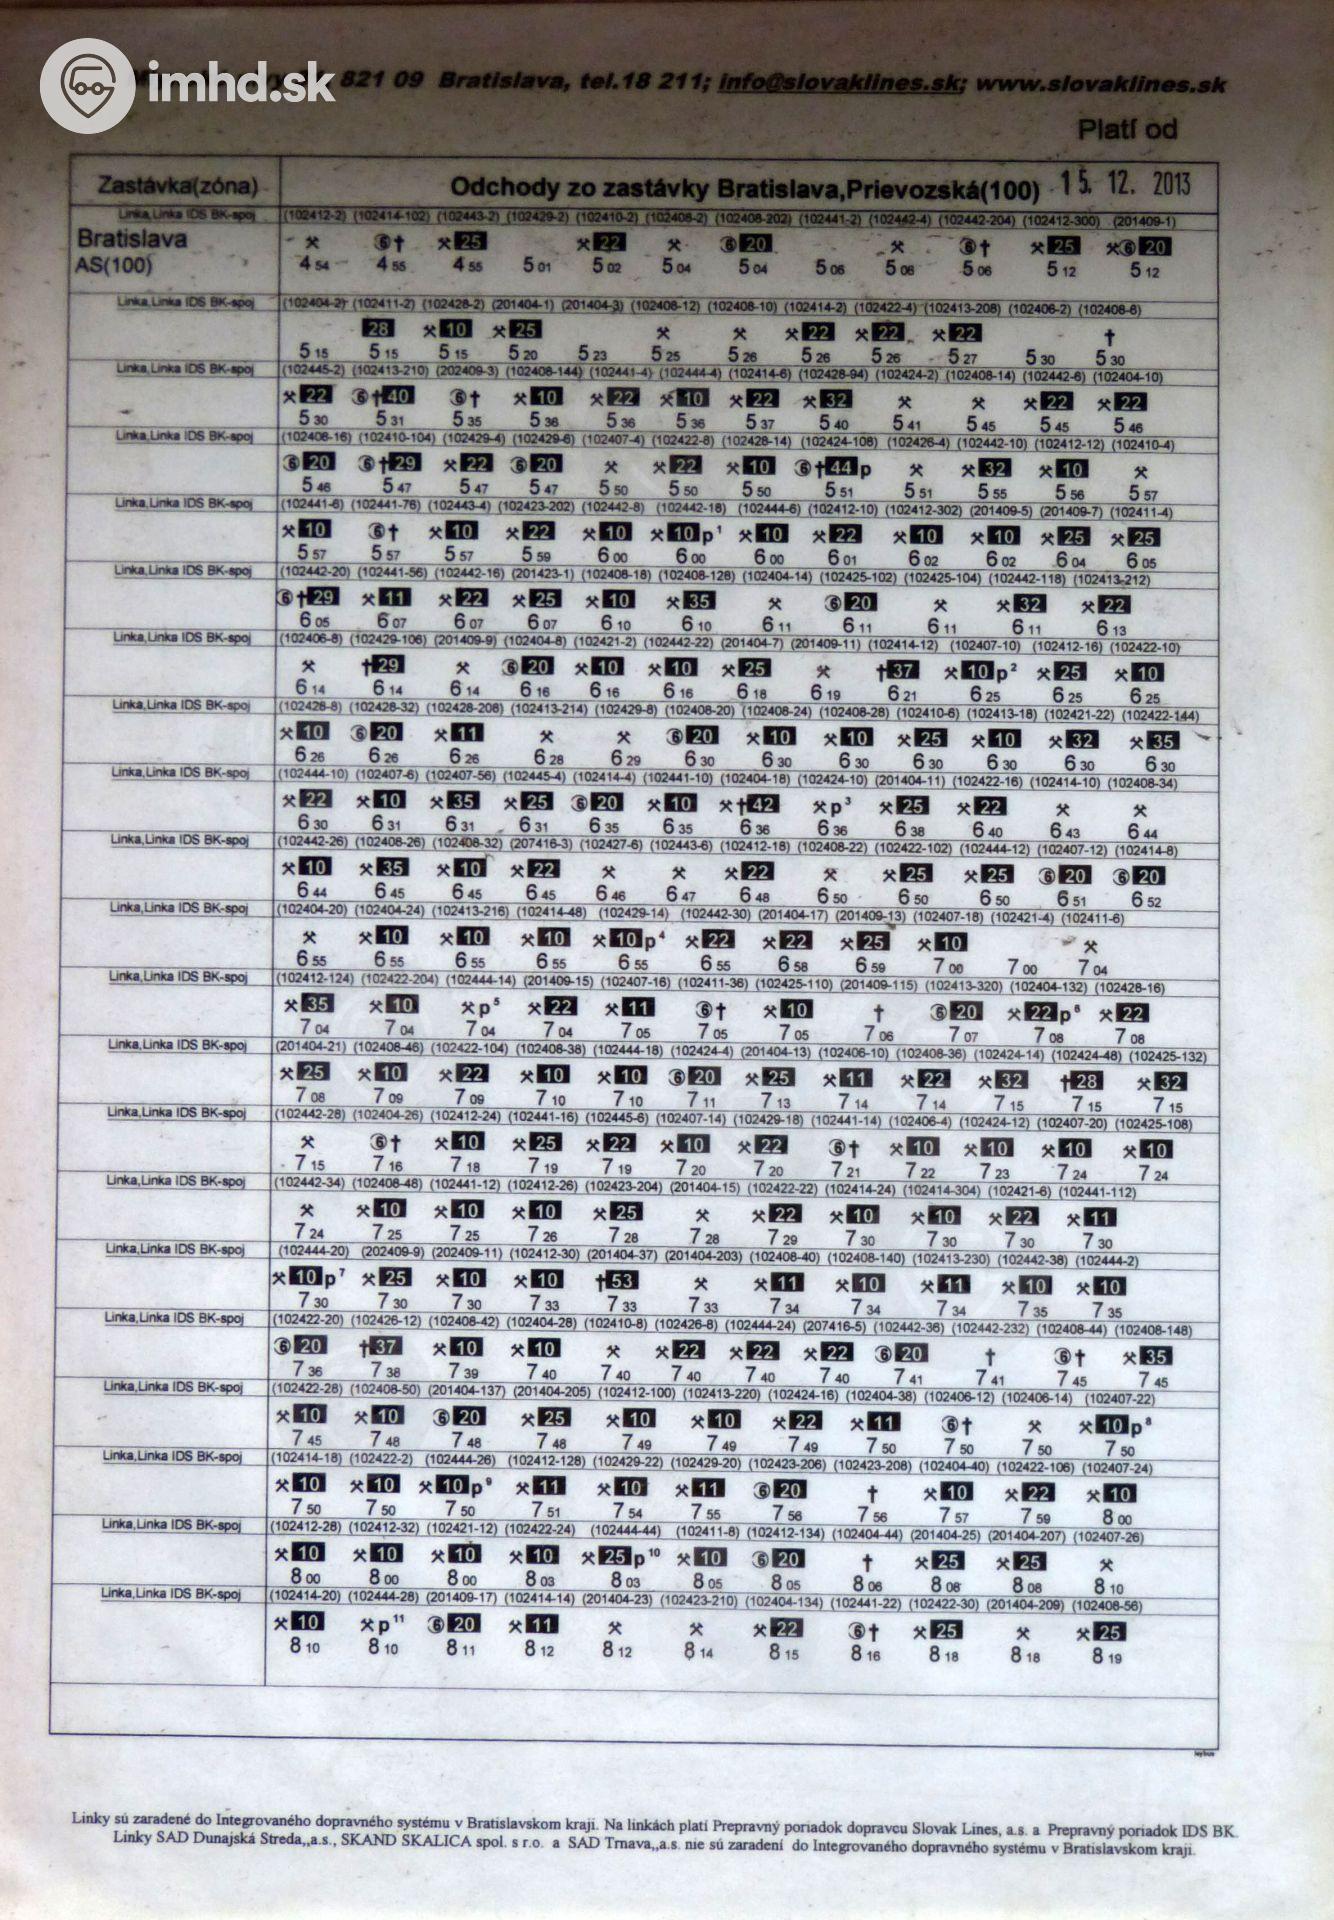 imhd.sk
821 09 Bratislava, tel.18 211; info@slovaklines.sk; www.slovaklines.sk
Platí od
Zastávka(zóna) Odchody zo zastávky Bratislava,Prievozská(100) 15. 12. 2013
Linka,Linka IDS BK-spoj (102412-2) (102414-102) (102443-2) (102429-2) (102410-2) (102408-2) (102408-202) (102441-2) (102442-4) (102442-204) (102412-300) (201409-1)
Bratislava ⚒ ⑥† ⚒25 ⚒22 ⚒ ⑥20 ⚒ ⑥† ⚒25 ⚒⑥20
AS(100) 4 54 4 55 4 55 5 01 5 02 5 04 5 04 5 06 5 06 5 06 5 12 5 12
Linka,Linka IDS BK-spoj (102404-2) (102411-2) (102428-2) (201404-1) (201404-3) (102408-12) (102408-10) (102414-2) (102422-4) (102413-208) (102406-2) (102408-6)
28 ⚒10 ⚒25 ⚒ ⚒ ⚒22 ⚒22 ⚒22 †
5 15 5 15 5 15 5 20 5 23 5 25 5 26 5 26 5 26 5 27 5 30 5 30
Linka,Linka IDS BK-spoj (102445-2) (102413-210) (202409-3) (102408-144) (102441-4) (102444-4) (102414-6) (102428-94) (102424-2) (102408-14) (102442-6) (102404-10)
⚒22 ⑥†40 ⑥† ⚒10 ⚒22 ⚒10 ⚒22 ⚒32 ⚒ ⚒ ⚒22 ⚒22
5 30 5 31 5 35 5 36 5 36 5 36 5 37 5 40 5 41 5 45 5 45 5 46
Linka,Linka IDS BK-spoj (102408-16) (102410-104) (102429-4) (102429-6) (102407-4) (102422-8) (102428-14) (102424-108) (102426-4) (102442-10) (102412-12) (102410-4)
⑥20 ⑥†29 ⚒22 ⑥20 ⚒ ⚒22 ⚒10 ⑥†44p ⚒ ⚒32 ⚒10 ⚒
5 46 5 47 5 47 5 47 5 50 5 50 5 50 5 51 5 51 5 55 5 56 5 57
Linka,Linka IDS BK-spoj (102441-6) (102441-76) (102443-4) (102423-202) (102442-8) (102442-18) (102444-6) (102412-10) (102412-302) (201409-5) (201409-7) (102411-4)
⚒10 ⑥† ⚒10 ⚒22 ⚒10 ⚒10p¹ ⚒10 ⚒22 ⚒10 ⚒10 ⚒25 ⚒25
5 57 5 57 5 57 5 59 6 00 6 00 6 00 6 01 6 02 6 02 6 04 6 05
Linka,Linka IDS BK-spoj (102442-20) (102441-56) (102442-16) (201423-1) (102408-18) (102408-128) (102404-14) (102425-102) (102425-104) (102442-118) (102413-212)
⑥†29 ⚒11 ⚒22 ⚒25 ⚒10 ⚒35 ⚒ ⑥20 ⚒ ⚒32 ⚒22
6 05 6 07 6 07 6 07 6 10 6 10 6 11 6 11 6 11 6 11 6 13
Linka,Linka IDS BK-spoj (102406-8) (102429-106) (201409-9) (102404-8) (102421-2) (102442-22) (201404-7) (201409-11) (102414-12) (102407-10) (102412-16) (102422-10)
⚒ †29 ⚒ ⑥20 ⚒10 ⚒10 ⚒25 ⚒ †37 ⚒10p² ⚒25 ⚒10
6 14 6 14 6 14 6 16 6 16 6 16 6 18 6 19 6 21 6 25 6 25 6 25
Linka,Linka IDS BK-spoj (102428-8) (102428-32) (102428-208) (102413-214) (102429-8) (102408-20) (102408-24) (102408-28) (102410-6) (102413-18) (102421-22) (102422-144)
⚒10 ⑥20 ⚒11 ⚒ ⚒ ⑥20 ⚒10 ⚒10 ⚒25 ⚒10 ⚒32 ⚒35
6 26 6 26 6 26 6 28 6 29 6 30 6 30 6 30 6 30 6 30 6 30 6 30
Linka,Linka IDS BK-spoj (102444-10) (102407-6) (102407-56) (102445-4) (102414-4) (102441-10) (102404-18) (102424-10) (201404-11) (102422-16) (102414-10) (102408-34)
⚒22 ⚒10 ⚒35 ⚒25 ⑥20 ⚒10 ⚒†42 ⚒p³ ⚒25 ⚒22 ⚒ ⚒
6 30 6 31 6 31 6 31 6 35 6 35 6 36 6 36 6 38 6 40 6 43 6 44
Linka,Linka IDS BK-spoj (102442-26) (102408-26) (102408-32) (207416-3) (102427-6) (102443-6) (102412-18) (102408-22) (102422-102) (102444-12) (102407-12) (102414-8)
⚒10 ⚒35 ⚒10 ⚒22 ⚒ ⚒ ⚒22 ⚒ ⚒25 ⚒25 ⑥20 ⑥20
6 44 6 45 6 45 6 45 6 46 6 47 6 48 6 50 6 50 6 50 6 51 6 52
Linka,Linka IDS BK-spoj (102404-20) (102404-24) (102413-216) (102414-48) (102429-14) (102442-30) (201404-17) (201409-13) (102407-18) (102421-4) (102411-6)
⚒ ⚒10 ⚒10 ⚒10 ⚒10p⁴ ⚒22 ⚒22 ⚒25 ⚒10 ⚒
6 55 6 55 6 55 6 55 6 55 6 55 6 58 6 59 7 00 7 00 7 04
Linka,Linka IDS BK-spoj (102412-124) (102422-204) (102444-14) (201409-15) (102407-16) (102411-36) (102425-110) (201409-115) (102413-320) (102404-132) (102428-16)
⚒35 ⚒10 ⚒p⁵ ⚒22 ⚒11 ⑥† ⚒10 † ⑥20 ⚒22p⁶ ⚒22
7 04 7 04 7 04 7 04 7 05 7 05 7 05 7 06 7 07 7 08 7 08
Linka,Linka IDS BK-spoj (201404-21) (102408-46) (102422-104) (102408-38) (102444-18) (102424-4) (201404-13) (102406-10) (102408-36) (102424-14) (102424-48) (102425-132)
⚒25 ⚒10 ⚒22 ⚒10 ⚒10 ⑥20 ⚒25 ⚒11 ⚒22 ⚒32 †28 ⚒32
7 08 7 09 7 09 7 10 7 10 7 11 7 13 7 14 7 14 7 15 7 15 7 15
Linka,Linka IDS BK-spoj (102442-28) (102404-26) (102412-24) (102441-16) (102445-6) (102407-14) (102429-18) (102441-14) (102406-4) (102424-12) (102407-20) (102425-108)
⚒ ⑥† ⚒10 ⚒25 ⚒22 ⚒10 ⚒22 ⑥† ⚒10 ⚒10 ⚒10 ⚒10
7 15 7 16 7 18 7 19 7 19 7 20 7 20 7 21 7 22 7 23 7 24 7 24
Linka,Linka IDS BK-spoj (102442-34) (102408-48) (102441-12) (102412-26) (102423-204) (201404-15) (102422-22) (102414-24) (102414-304) (102421-6) (102441-112)
⚒ ⚒10 ⚒10 ⚒10 ⚒25 ⚒ ⚒22 ⚒10 ⚒10 ⚒22 ⚒11
7 24 7 25 7 25 7 26 7 28 7 28 7 29 7 30 7 30 7 30 7 30
Linka,Linka IDS BK-spoj (102444-20) (202409-9) (202409-11) (102412-30) (201404-37) (201404-203) (102408-40) (102408-140) (102413-230) (102442-38) (102444-2)
⚒10p⁷ ⚒25 ⚒10 ⚒10 †53 ⚒ ⚒11 ⚒10 ⚒11 ⚒10 ⚒10
7 30 7 30 7 30 7 33 7 33 7 33 7 34 7 34 7 34 7 35 7 35
Linka,Linka IDS BK-spoj (102422-20) (102426-12) (102408-42) (102404-28) (102410-8) (102426-8) (102444-24) (207416-5) (102442-36) (102442-232) (102408-44) (102408-148)
⑥20 †37 ⚒10 ⚒10 ⚒ ⚒22 ⚒22 ⚒22 ⑥20 † ⑥† ⚒35
7 36 7 38 7 39 7 40 7 40 7 40 7 40 7 40 7 41 7 41 7 45 7 45
Linka,Linka IDS BK-spoj (102422-28) (102408-50) (201404-137) (201404-205) (102412-100) (102413-220) (102424-16) (102404-38) (102406-12) (102406-14) (102407-22)
⚒10 ⚒10 ⑥20 ⚒25 ⚒10 ⚒10 ⚒22 ⚒11 ⑥† ⚒ ⚒10p⁸
7 45 7 48 7 48 7 48 7 49 7 49 7 49 7 50 7 50 7 50 7 50
Linka,Linka IDS BK-spoj (102414-18) (102422-2) (102444-26) (102412-128) (102429-22) (102429-20) (102423-206) (102423-208) (102404-40) (102422-106) (102407-24)
⚒10 ⚒10 ⚒10p⁹ ⚒11 ⚒10 ⚒11 ⑥20 † ⚒10 ⚒22 ⚒10
7 50 7 50 7 50 7 51 7 54 7 55 7 56 7 56 7 57 7 59 8 00
Linka,Linka IDS BK-spoj (102412-28) (102412-32) (102421-12) (102422-24) (102444-44) (102411-8) (102412-134) (102404-44) (201404-25) (201404-207) (102407-26)
⚒10 ⚒10 ⚒10 ⚒10 ⚒25p¹⁰ ⚒10 ⑥20 † ⚒25 ⚒25 ⚒
8 00 8 00 8 00 8 03 8 03 8 05 8 05 8 06 8 08 8 08 8 10
Linka,Linka IDS BK-spoj (102414-20) (102444-28) (201409-17) (102414-14) (201404-23) (102423-210) (102404-134) (102441-22) (102422-30) (201404-209) (102408-56)
⚒10 ⚒p¹¹ ⑥20 ⚒11 ⚒ ⚒ ⚒22 ⑥† ⚒25 ⚒ ⚒25
8 10 8 10 8 11 8 12 8 12 8 14 8 15 8 16 8 18 8 18 8 19
Linky sú zaradené do Integrovaného dopravného systému v Bratislavskom kraji. Na linkách platí Prepravný poriadok dopravcu Slovak Lines, a.s. a Prepravný poriadok IDS BK.
Linky SAD Dunajská Streda,,a.s., SKAND SKALICA spol. s r.o. a SAD Trnava,,a.s. nie sú zaradení do Integrovaného dopravného systému v Bratislavskom kraji.